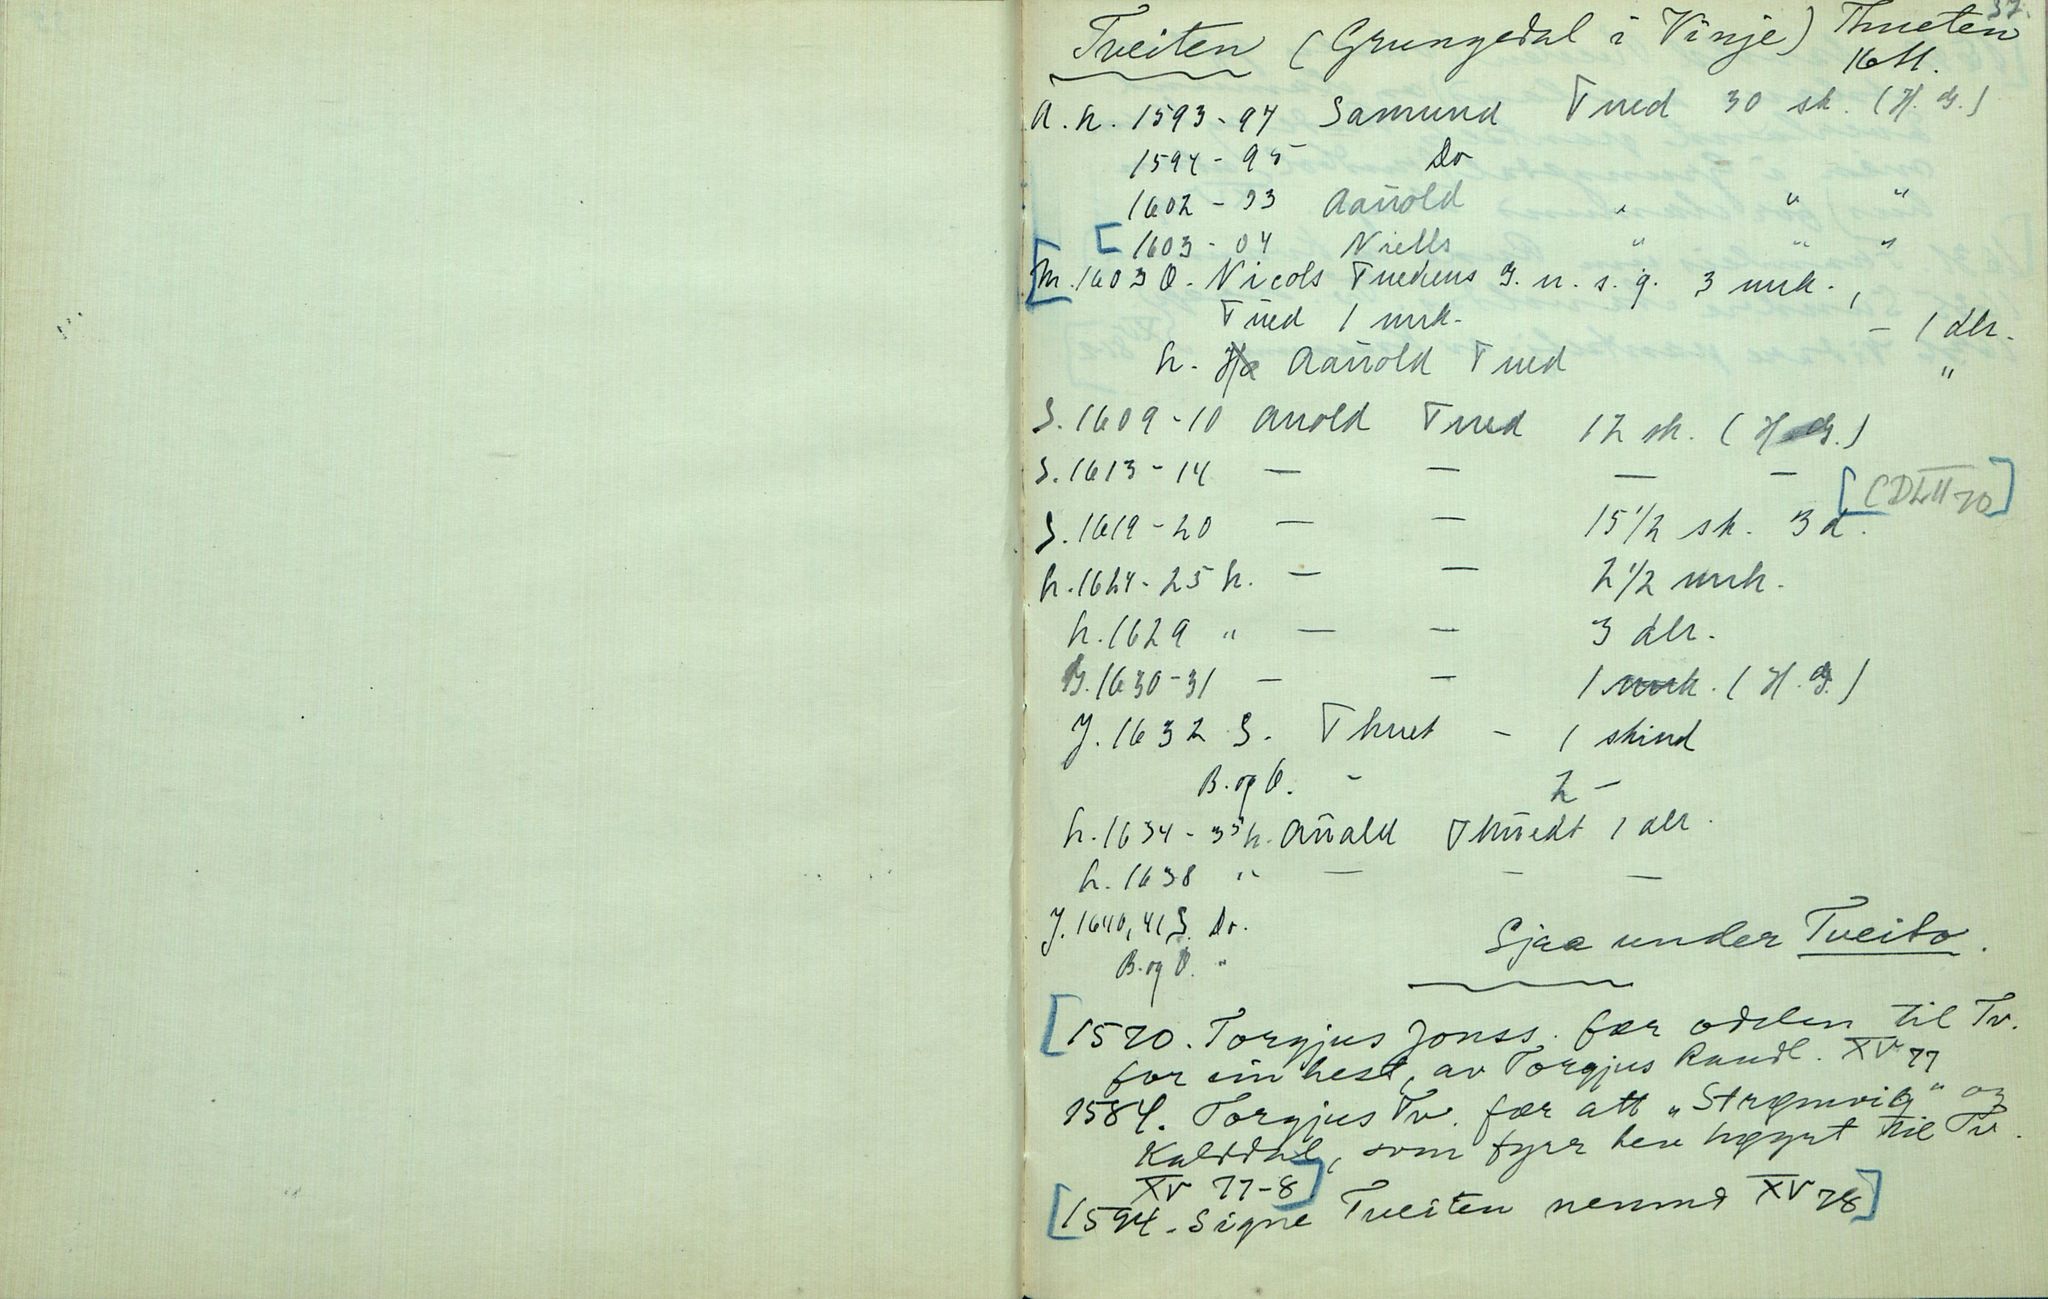 37.
Tveiten (Grungedal i Vinje) Thueten
16 M.
A. h. 1593-94 Samund Tued 30 sk. (H. G.)
1594-95 Do
1602-03 Aanold " " "
[1603-04 Niells " " "
[M. 1603 O. Nicols Tuedens G. n. s. g. 3 mrk.,
Tued 1 mrk. - 1 dlr.
h. Aanold Tued "
S. 1609-10 Anold Tued 12 sk. (H. G.)
S. 1613-14 — — — —
[(DLII 70]
S. 1619-20 — — 15 1/2 sk. 3 d.
h. 1624-25 h. — — 2 1/2 mrk.
h. 1629 " — — 3 dlr.
G. 1630-31 — — 1 mrk. (H. G.)
J. 1632 S. Thuet - 1 skind
B. og O. - 2 -
h. 1634-35 h. Anald Thuedt 1 dlr.
h. 1638 " — — —
J. 1640, 41, S. Do.
Sjaa under Tveito.
B. og O. "
[1570. Torgjus Jonss. fær odelen til Tv.
for ein hest, av Torgjus Raudl. XV 77
1584. Torgjus Tv. fær att „Strømvig" og
Kalddal, som fyrr hev høyrt til Tv.
XV 77-8]
[1594. Signe Tveiten nemnd XV 78]